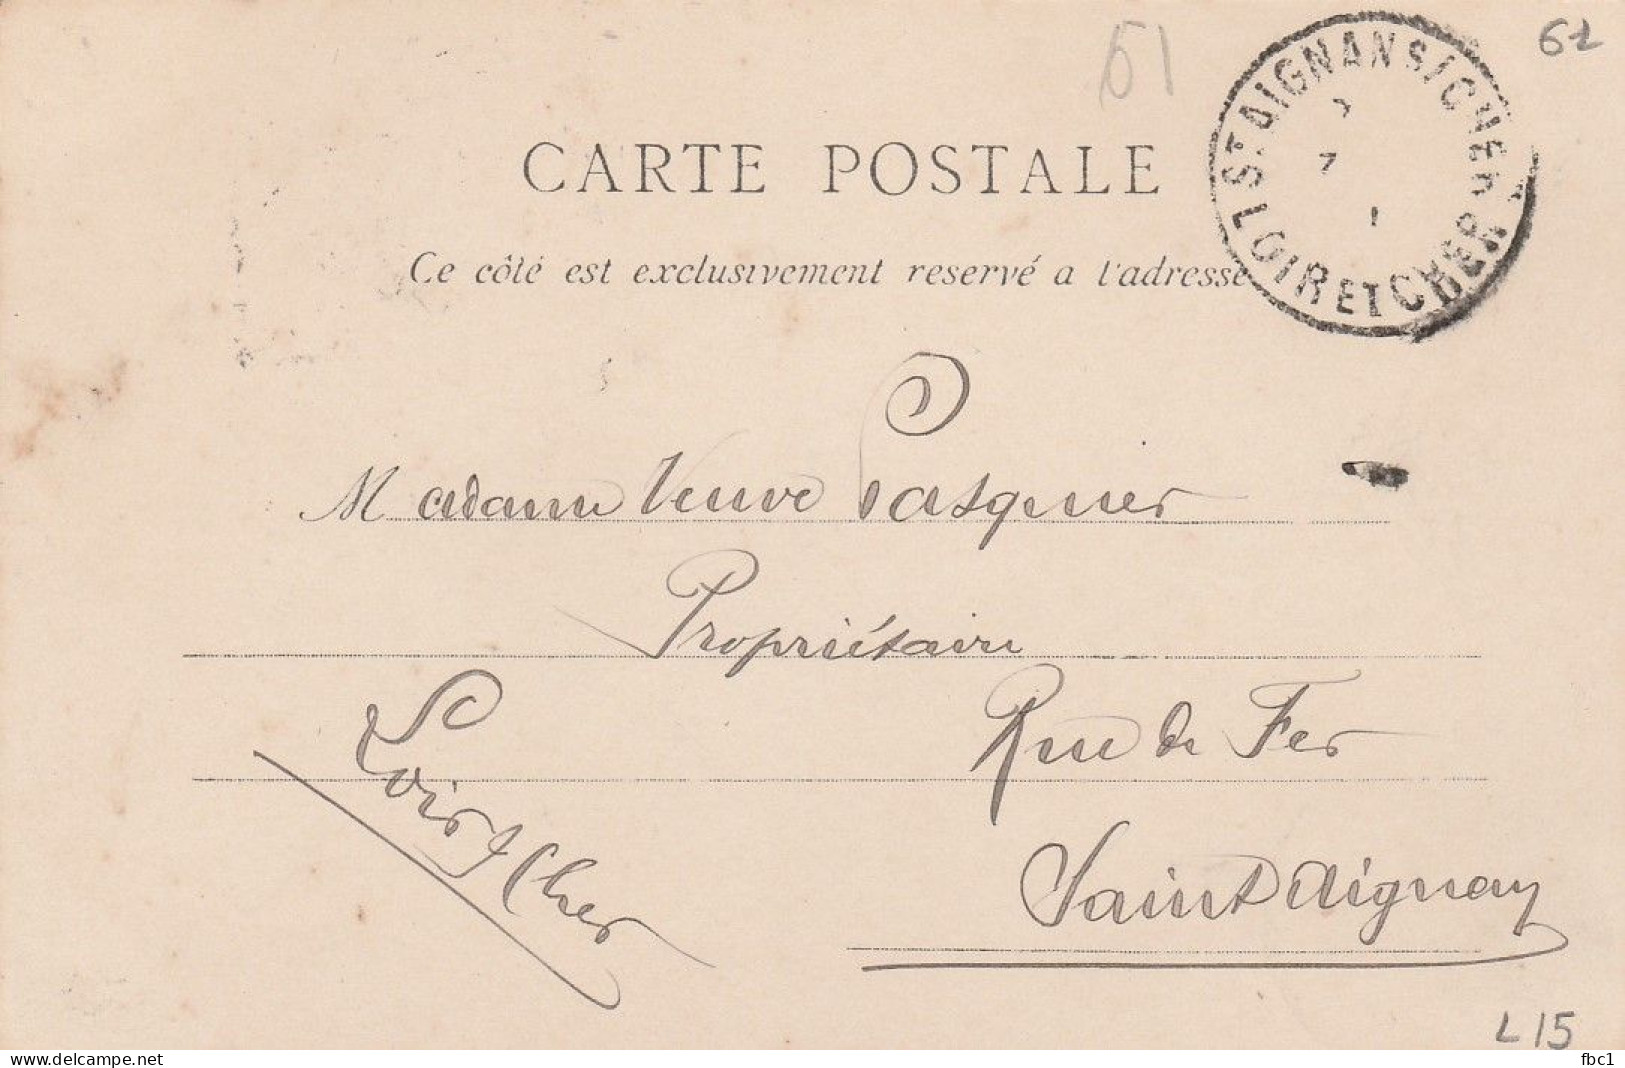 51
62
ST AIGNAN S/CHER
LOIR ET CHER
CARTE POSTALE
Ce côté est exclusivement reservé a l'adresse
Madame Veuve Pasquier
Propriétaire
Rue de Fer
Saint Aignan
Loir & Cher
L15
delcampe.net
fbc1